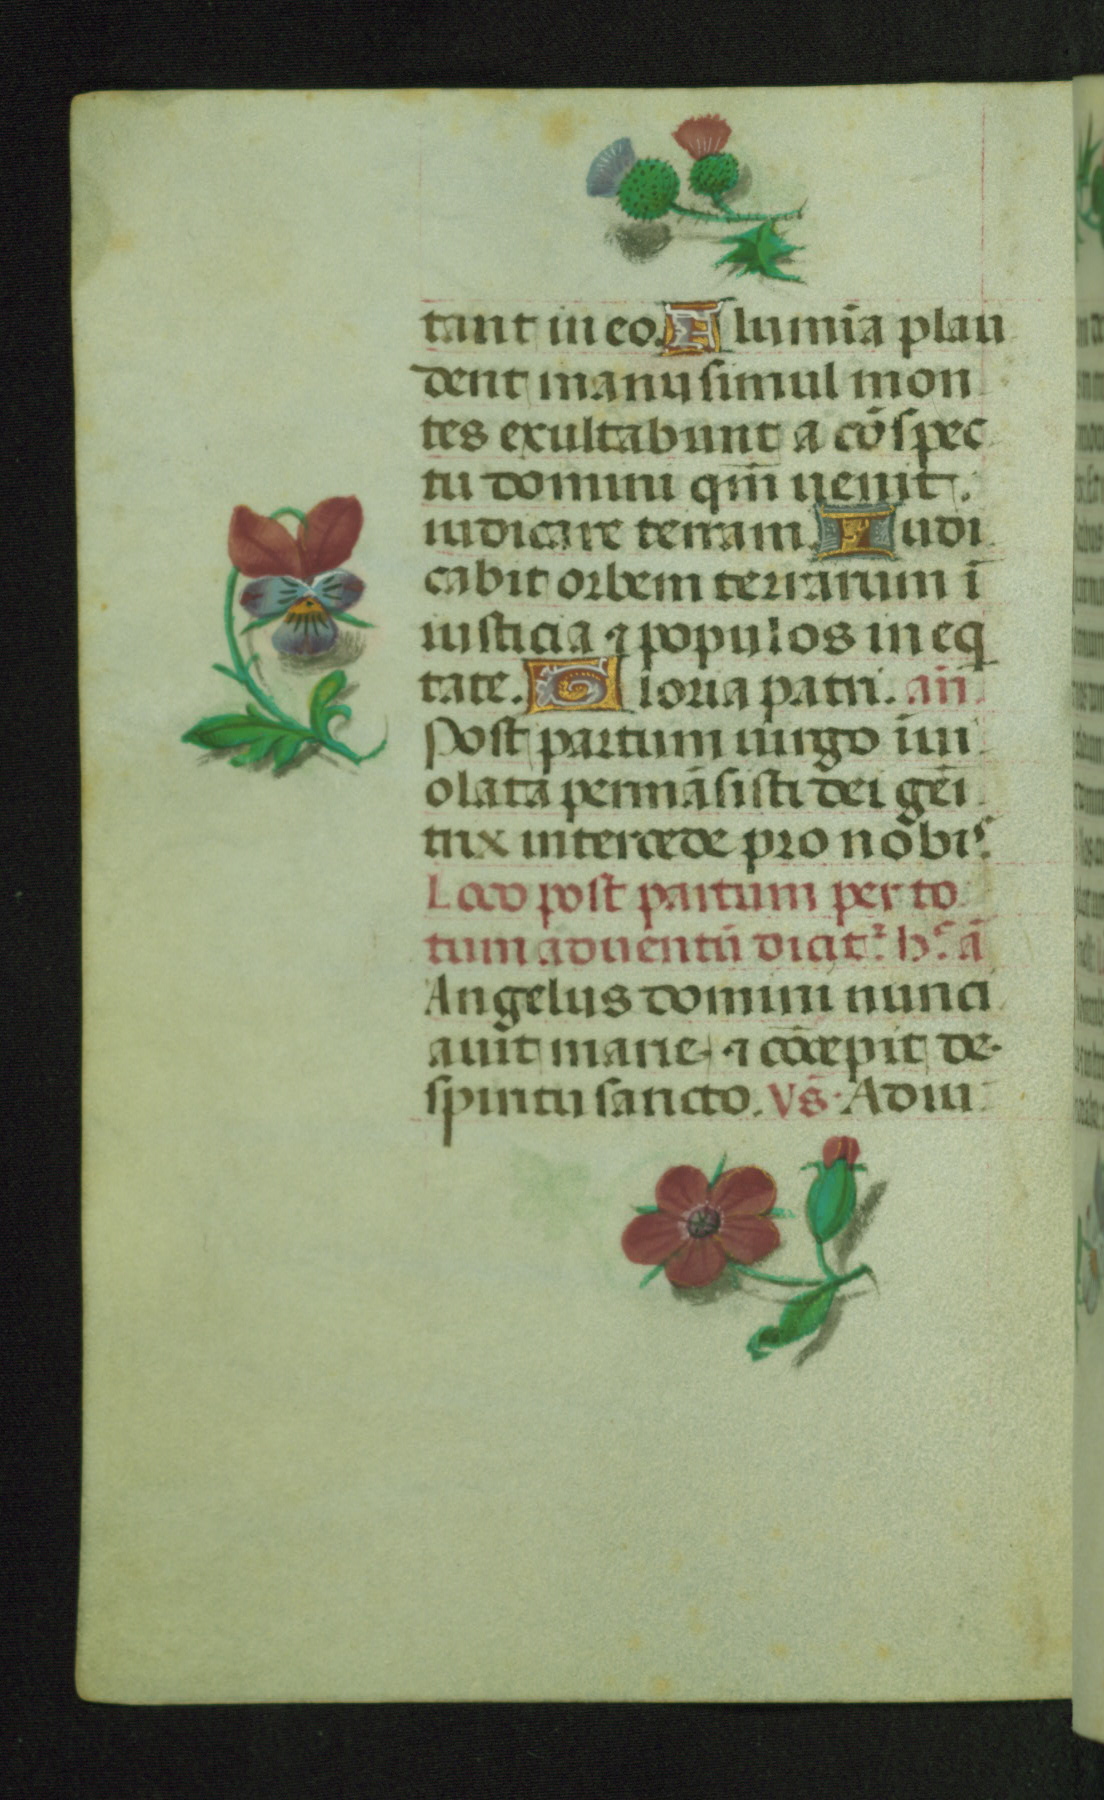 tant in eo. Flumĩa plau
dent manu simul mon
tes exultabunt a cõspec
tu domini qm̃ uenit.
iudicare terram. Iudi
cabit orbem terrarum ĩ
iusticia ⁊ populos in eq
tate. Gloria patri. añ
Post partum uirgo ĩui
olata permãsisti dei gẽi
trix intercede pro nobis.
Loco post partum per to
tum aduentũ dicitᷣ hᷤ ã
Angelus domini nunci
auit marie. ⁊ cõcepit de
spiritu sancto. Vs̃. Adiu